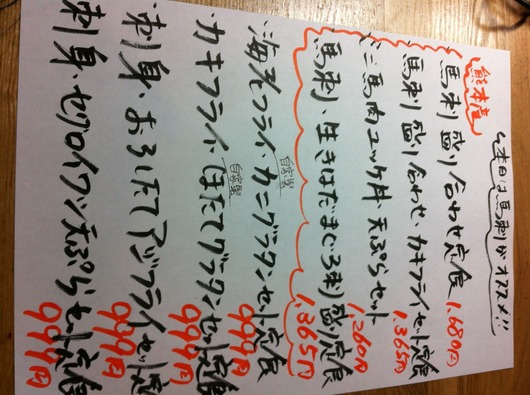 本日は馬刺がオススメ!!
熊本産
馬刺盛り合わせ定食 1,680円
馬刺盛り合わせ、カキフライセット定食 1,365円
ミニ馬肉ユッケ丼 天ぷらセット 1,260円
馬刺、生きはだまぐろ刺盛り定食 1,365円
海老フライ、自家製カニグラタンセット定食 999円
カキフライ、自家製ほたてグラタンセット定食 999円
刺身、おろしたてアジフライセット定食 999円
刺身、ゼロイワシ天ぷらセット定食 999円